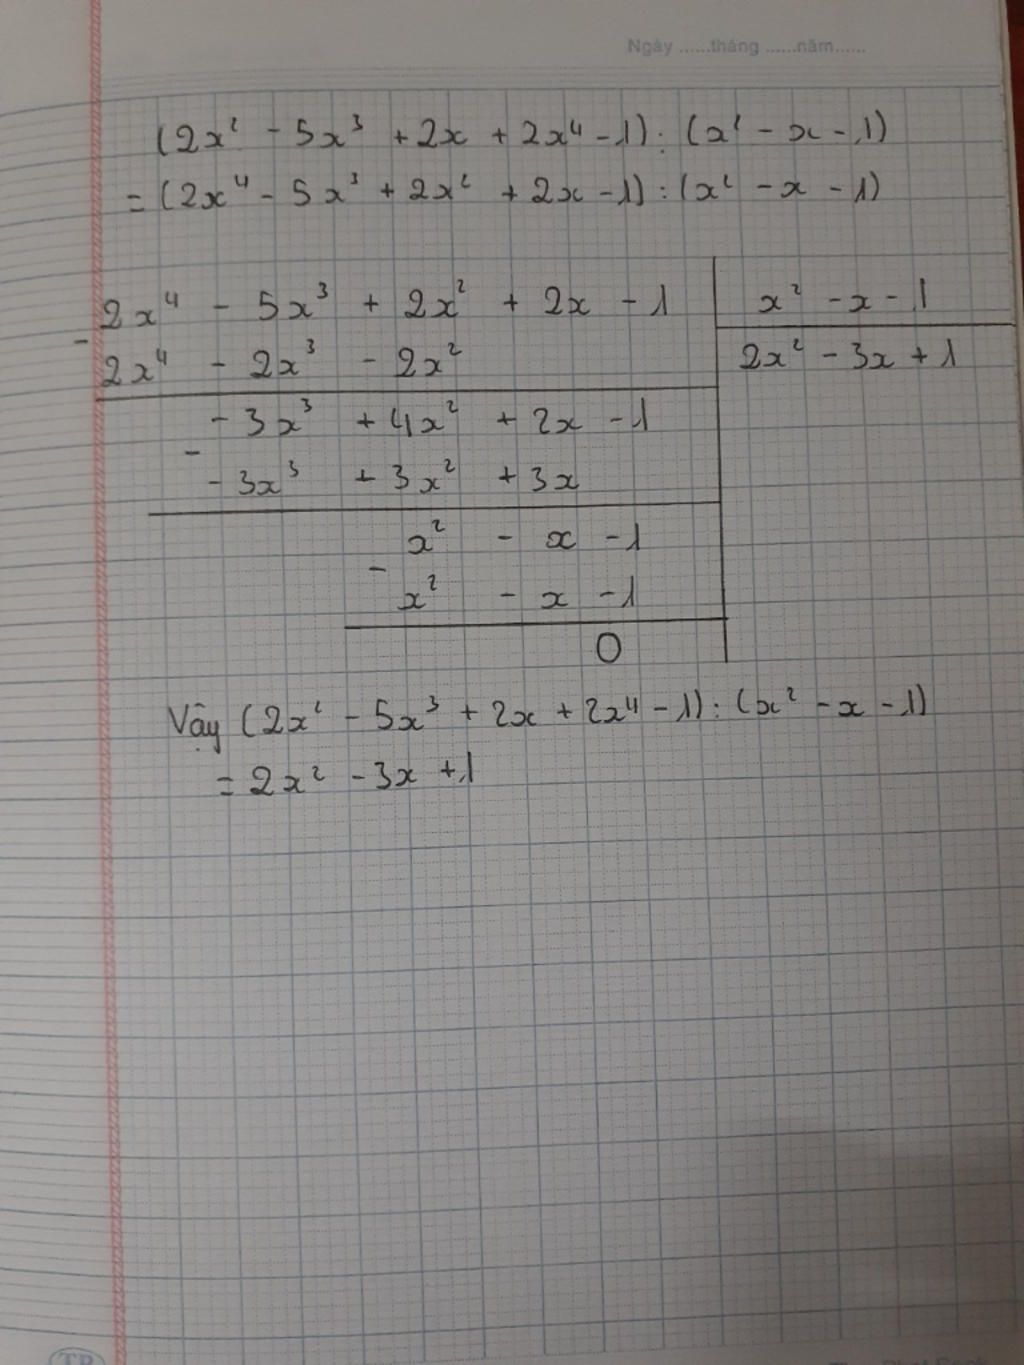 Ngày ......tháng ......năm......
(2x² - 5x³ + 2x + 2x⁴ - 1) : (x² - x - 1)
= (2x⁴ - 5x³ + 2x² + 2x - 1) : (x² - x - 1)
2x⁴ - 5x³ + 2x² + 2x - 1 | x² - x - 1
-
2x⁴ - 2x³ - 2x² | 2x² - 3x + 1
- 3x³ + 4x² + 2x - 1
-
- 3x³ + 3x² + 3x
x² - x - 1
-
x² - x - 1
0
Vậy (2x² - 5x³ + 2x + 2x⁴ - 1) : (x² - x - 1)
= 2x² - 3x + 1